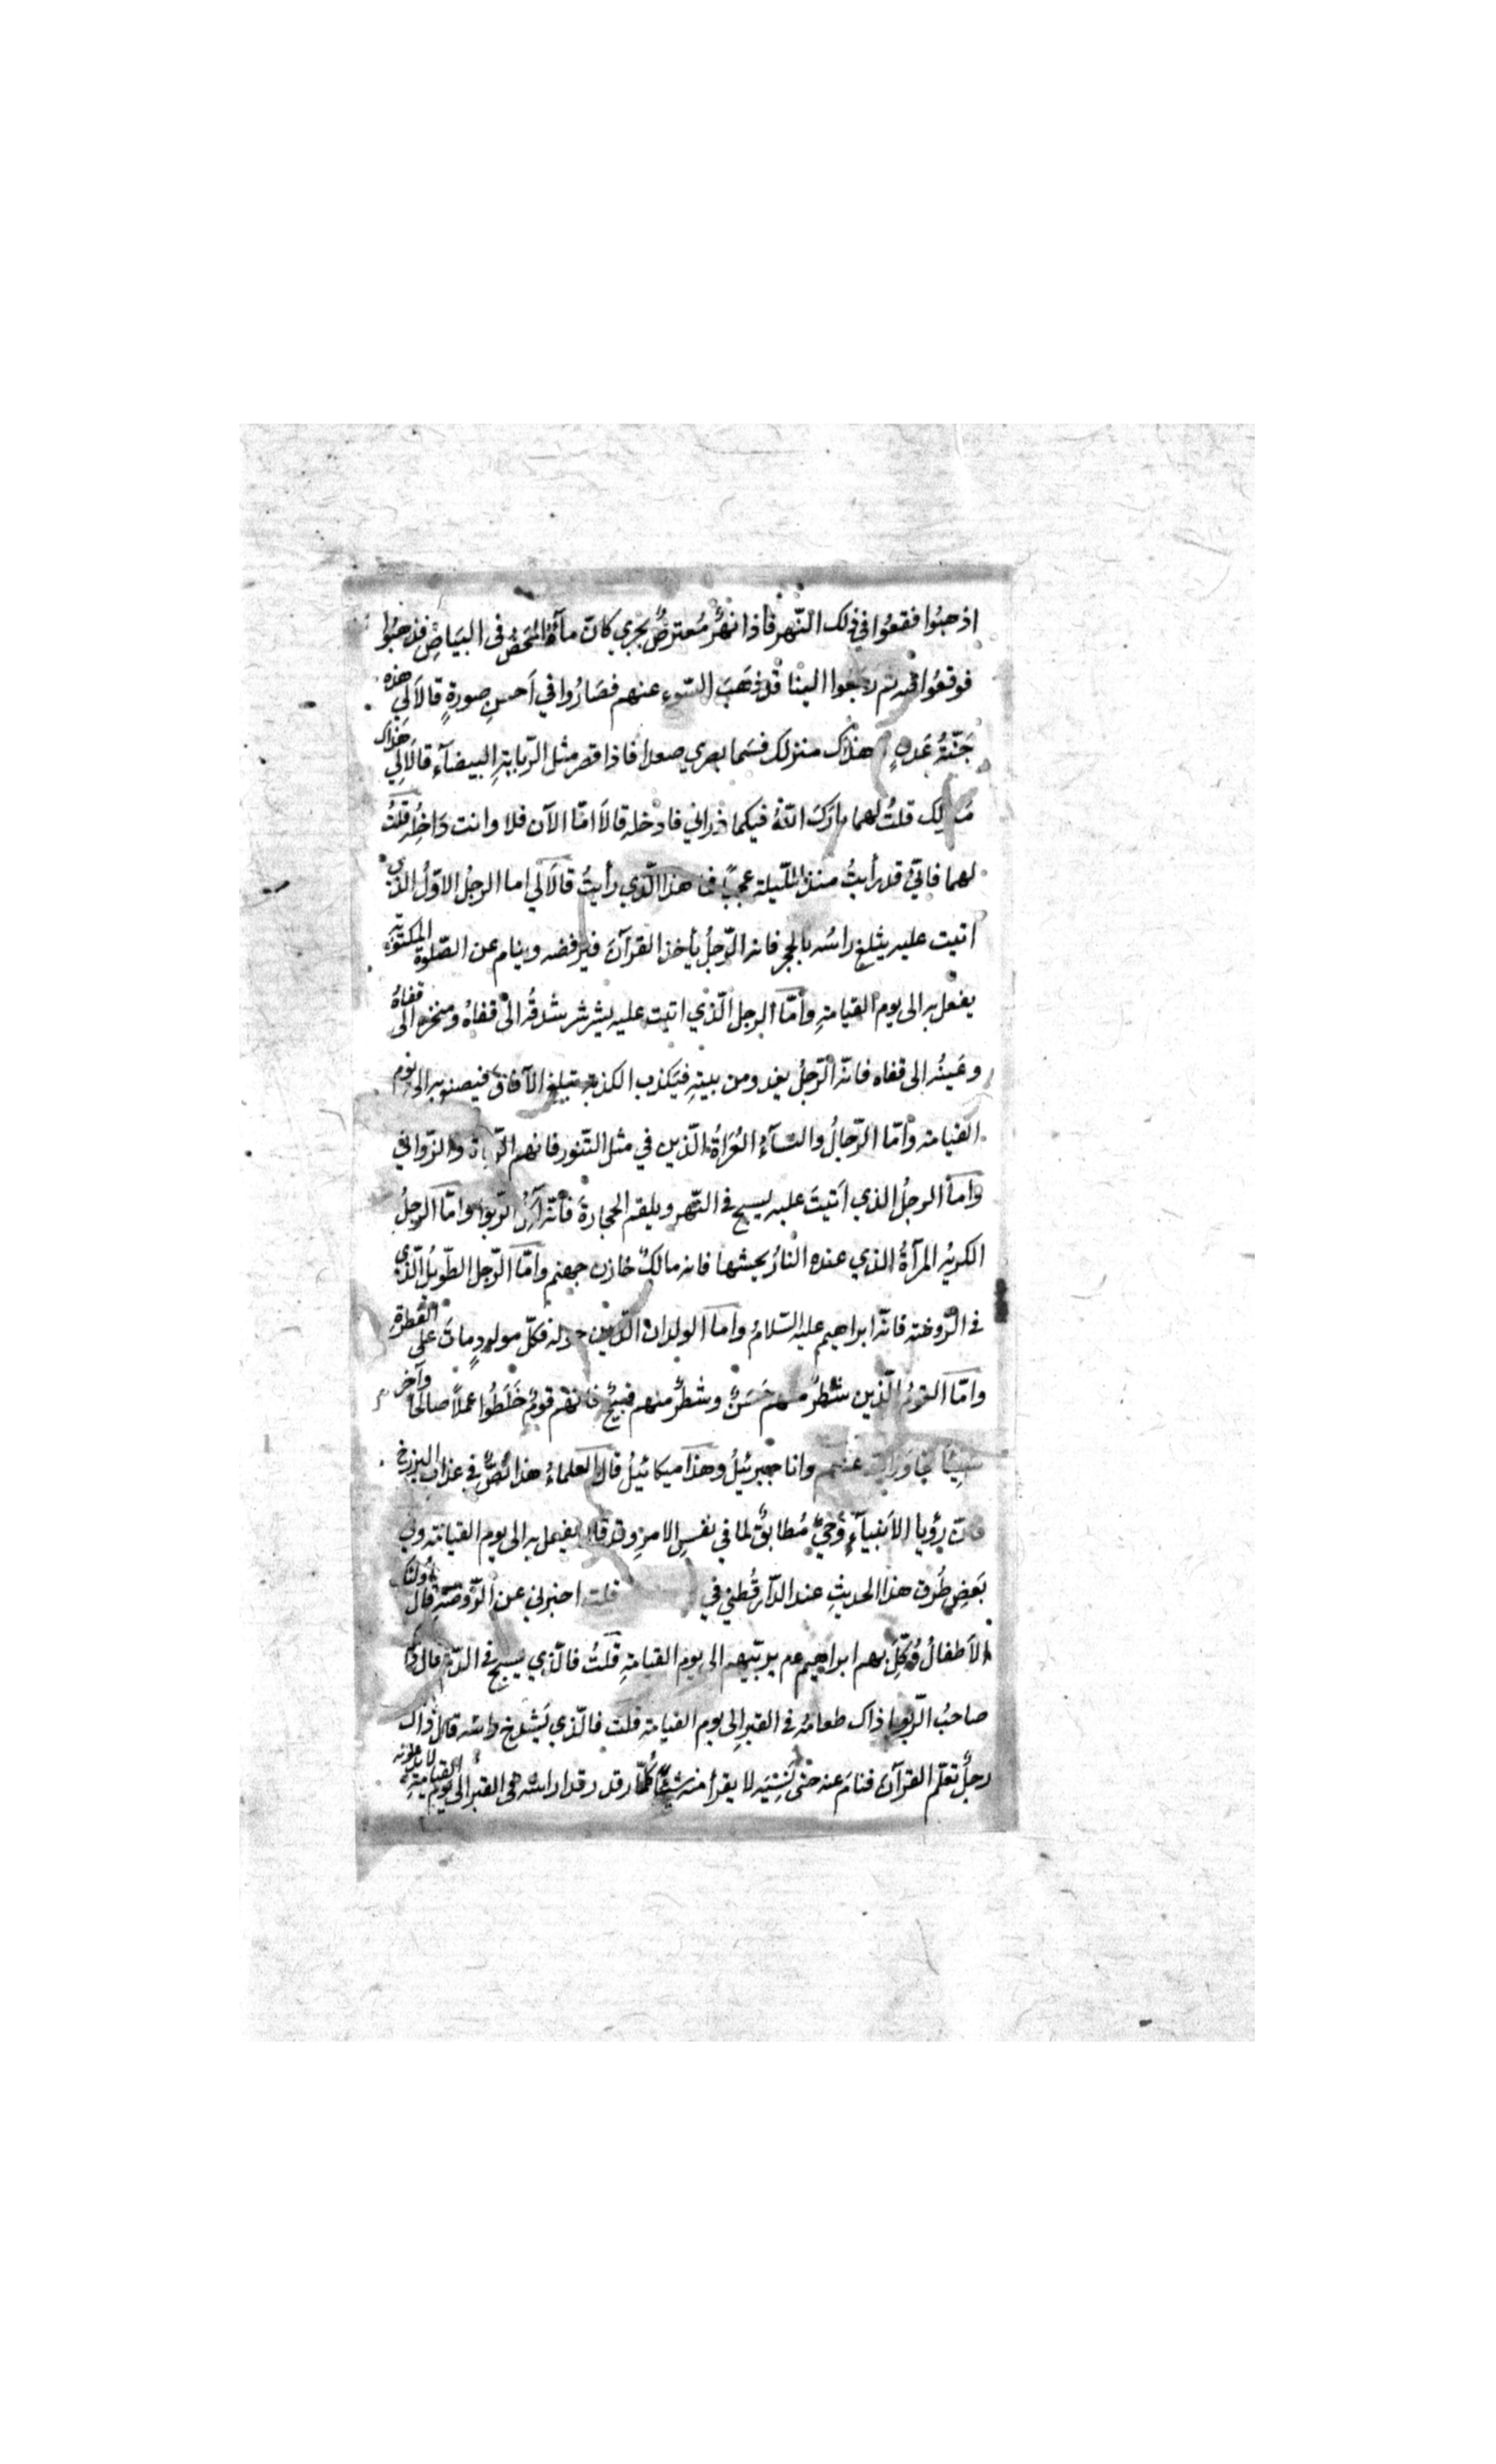 اذهبُوا فقعُوا في ذلك النّهر فاذا نهرٌ مُعترضٌ يجري كانّ مآءَهُ المَحْضُ في البَيَاضِ فذهبُوا
فوقعُوا فيه ثم رجعوا الينا قد ذهَبَ السّوء عنهم فصَارُوا في اَحسنِ صورةٍ قالاَ لِي هذه
جَنّةُ عَدنٍ وهذاك منزلك فسَما بصري صعدا فاذا قصر مثل الرّبابةِ البيضآء قالاَ لِي هذاك
منزلك قلتُ لهما بارَكَ اللّهُ فيكما ذراني فادخله قالاَ امّا الآن فلا وانت دَاخِلُه قلتُ
لهما فانّي قد رأيتُ منذ اللّيلة عجبًا فما هذا الّذي رأيتُ قالاَ لي اما الرجُل الاوّلُ الذي
اتيت عليه يثلغ راسُه بالحجر فانه الرّجلُ ياخذ القرآنَ فيرفضه وينام عن الصّلوة المكتوبَة
يفعل به الى يوم القيامةِ وأمّا الرجل الّذي اتيت عليه يشرشر شدقُه الى قفاهُ ومنخره الى قفاهُ
وعَينُه الى قفاه فانّه الرّجلُ يغدو من بيتهِ فيَكذب الكذبة تبلغ الآفاق فيصنع به الى يوم
القيامة وامّا الرّجالُ والنّسآءُ العُرَاةُ الّذين في مثل التّنور فانهم الزّناة والزّواني
وامّا الرجلُ الذي اَتيتَ عليه يسبح في النّهر ويلقم الحجارةَ فانّه آكلُ الرّبوا وامّا الرجلُ
الكريهُ المرآةُ الذي عنده النارُ يحشها فانه مالكٌ خازن جهنم وامّا الرّجل الطّويلُ الّذي
في الرّوضة فانّه ابراهيم عليه السّلامُ واما الولدان الّذين حوله فكلّ مولودٍ ماتَ على الفطرة
وامّا القومُ الّذين شَطرٌ منهم حَسَنٌ وشطرٌ منهم قبيحٌ فانّهم قومٌ خَلَطُوا عملاً صالحًا وآخر
سَيِئًا تجاوَزَ اللّه عنهم وانا جبرئيلُ وهذا ميكائيلُ قال العلماءُ هذا نَصٌّ في عذاب البرزخ
فانّ رؤيا الاَنبيآءِ وَحيٌ مُطابقٌ لما في نفسِ الامرِ وقد قال يفعل به الى يوم القيامة وفي
بَعضِ طُرق هذا الحديثِ عند الدّارقُطني في قلت اخبرني عن الرّوضةِ قال اُولئك
الاَطفالُ وُكِّلَ بهم ابراهيم عم يربّيهم الى يوم القيامةِ قلتُ فالّذي يَسبح في الدّم قال ذاك
صاحبُ الرّبوا ذاك طعامُه في القبر اِلى يوم القيامة قلت فالّذي يَشدَخ راسُه قال ذاك
رجلٌ تعلّم القرآن فنامَ عنه حتى نَسِيَه لا يقرأ منه شيئًا كُلّما رقد دقوا راسه في القبر الى يوم القيامةِ لا يدعونه